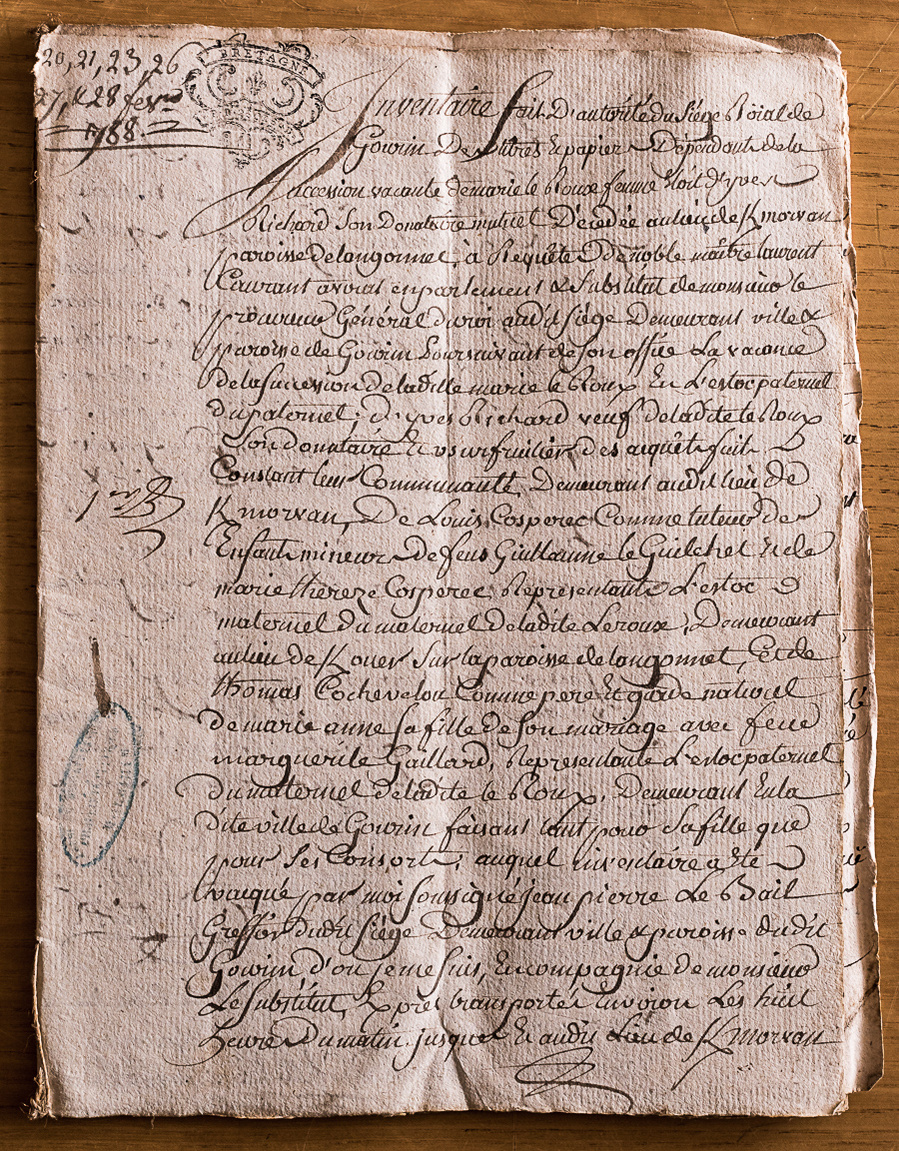 20, 21, 23, 26
27, & 28 fevr
1788
BRETAGNE
Inventaire fait D'autorité du Siége Roial de
Gourin De titres & papiers Dépendants de la
succession vacante de marie le Roux femme d'Yves
Richard Son Donataire mutuel Décédée au lieu de Kmorvan
paroisse de langonnet, à Requête De noble maitre laurent
avocat en parlement & Substitut de monsieur le
procureur Général du roi audit siége Demeurant ville &
paroisse de Gourin Poursuivant de son office La vacance
de la Succession de ladite marie le Roux En L'estoc paternel
du paternel, d'Yves Richard veuf de ladite le Roux
Son donataire & usurfruitier des acquêts fait
Constant leur Communauté, Demeurant audit lieu de
Kmorvan, De Louis Cosperec Comme tuteur de
Enfants mineurs de feus Guillaume le Guilchet & de
marie thereze Cosperec, Représentants L'estoc
maternel du maternel de ladite Leroux, Demeurant
au lieu de Kouer Sur la paroisse de langonnet, Et de
thomas Cochevelou Comme pere Et garde naturel
de marie anne Sa fille de Son mariage avec feue
marguerite Gaillard, Representante L'estoc paternel
Du maternel de ladite le Roux, Demeurant En la
dite ville de Gourin faisant tant pour Sa fille que
pour Ses Consorts, auquel inventaire a Eté
vacqué par moi Soussigné jean pierre Le Bail
Greffier Dudit Siége Demeurant ville & paroisse dudit
Gourin d'ou je me suis, En compagnie de monsieur
Le Substitut, Exprès transporté Environ Les huit
heures Du matin jusques Et audit Lieu de Kmorvan